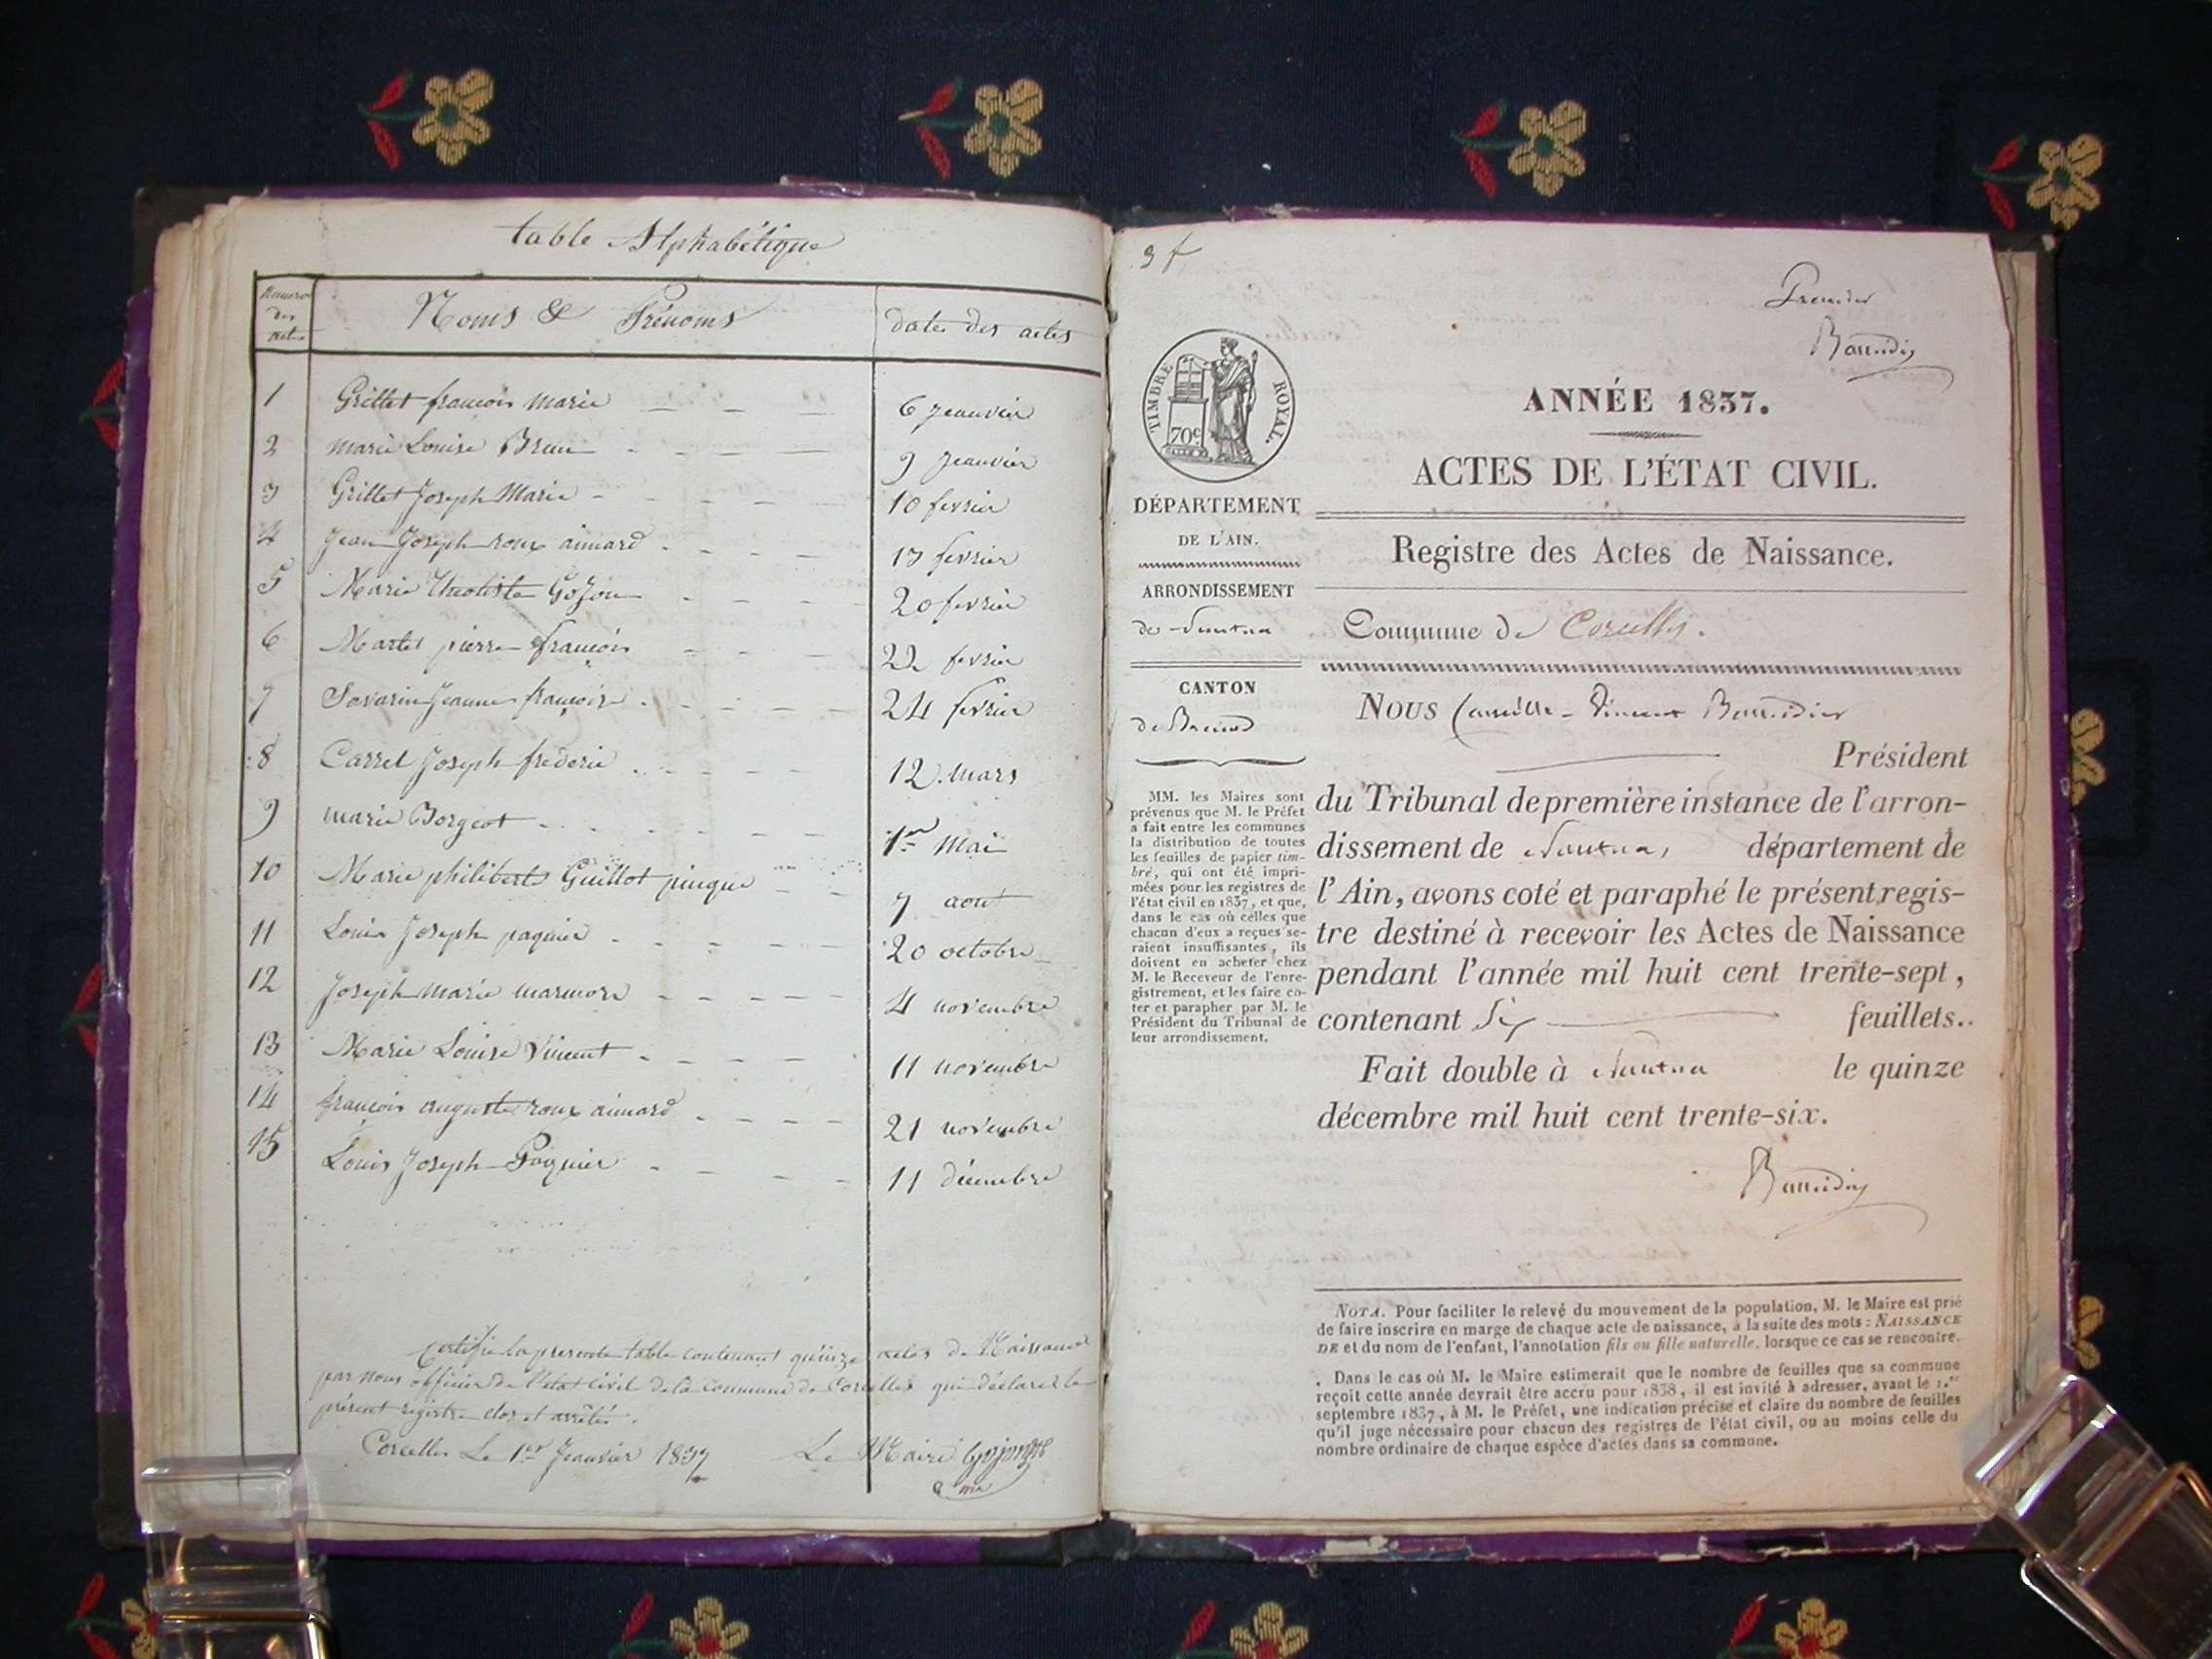 table Alphabétique
Numero des actes
Noms & Prénoms
date des actes
1 Grillet francois Marie 6 Jeanvier
2 marie Louise Brun 9 Jeanvier
3 Grillet Joseph Marie 10 fevrier
4 Jean Joseph roux aimard 13 fevrier
5 Marie 20 fevrier
6 Martel pierre francois 22 fevrier
7 Savarin Jeanne françoise 24 fevrier
8 Carrel Joseph frederic 12 mars
9 marie Borgeot 1er Mai
10 Marie philiberte Guillot pingue 7 aout
11 Louis Joseph paquier 20 octobre
12 Joseph Marie marmore 4 novembre
13 Marie Louise Vincent 11 novembre
14 francois auguste roux aimard 21 novembre
15 Louis Joseph Paquier 11 décembre
Certifie la presente table contenant quinze actes de Naissance
par nous officier de l'état civil de la commune de Corcelles qui déclare le
présent registre clos et arrêté.
Corcelles Le 1er Jeanvier 1837 Le Maire
Premier
TIMBRE ROYAL.
70c
DÉPARTEMENT
DE L'AIN.
ARRONDISSEMENT
de Nantua
CANTON
de Brenod
MM. les Maires sont
prévenus que M. le Préfet
a fait entre les communes
la distribution de toutes
les feuilles de papier tim-
bré, qui ont été impri-
mées pour les registres de
l'état civil en 1837, et que,
dans le cas où celles que
chacun d'eux a reçues se-
raient insuffisantes, ils
doivent en acheter chez
M. le Receveur de l'enre-
gistrement, et les faire co-
ter et parapher par M. le
Président du Tribunal de
leur arrondissement.
ANNÉE 1837.
ACTES DE L'ÉTAT CIVIL.
Registre des Actes de Naissance.
Commune de Corcelles.
NOUS Camille Vincent
Président
du Tribunal de première instance de l'arron-
dissement de Nantua, département de
l'Ain, avons coté et paraphé le présent regis-
tre destiné à recevoir les Actes de Naissance
pendant l'année mil huit cent trente-sept,
contenant Six feuillets.
Fait double à Nantua le quinze
décembre mil huit cent trente-six.
NOTA. Pour faciliter le relevé du mouvement de la population, M. le Maire est prié
de faire inscrire en marge de chaque acte de naissance, à la suite des mots : NAISSANCE
DE et du nom de l'enfant, l'annotation fils ou fille naturelle, lorsque ce cas se rencontre.
Dans le cas où M. le Maire estimerait que le nombre de feuilles que sa commune
reçoit cette année devrait être accru pour 1838, il est invité à adresser, avant le 1.er
septembre 1837, à M. le Préfet, une indication précise et claire du nombre de feuilles
qu'il juge nécessaire pour chacun des registres de l'état civil, ou au moins celle du
nombre ordinaire de chaque espèce d'actes dans sa commune.